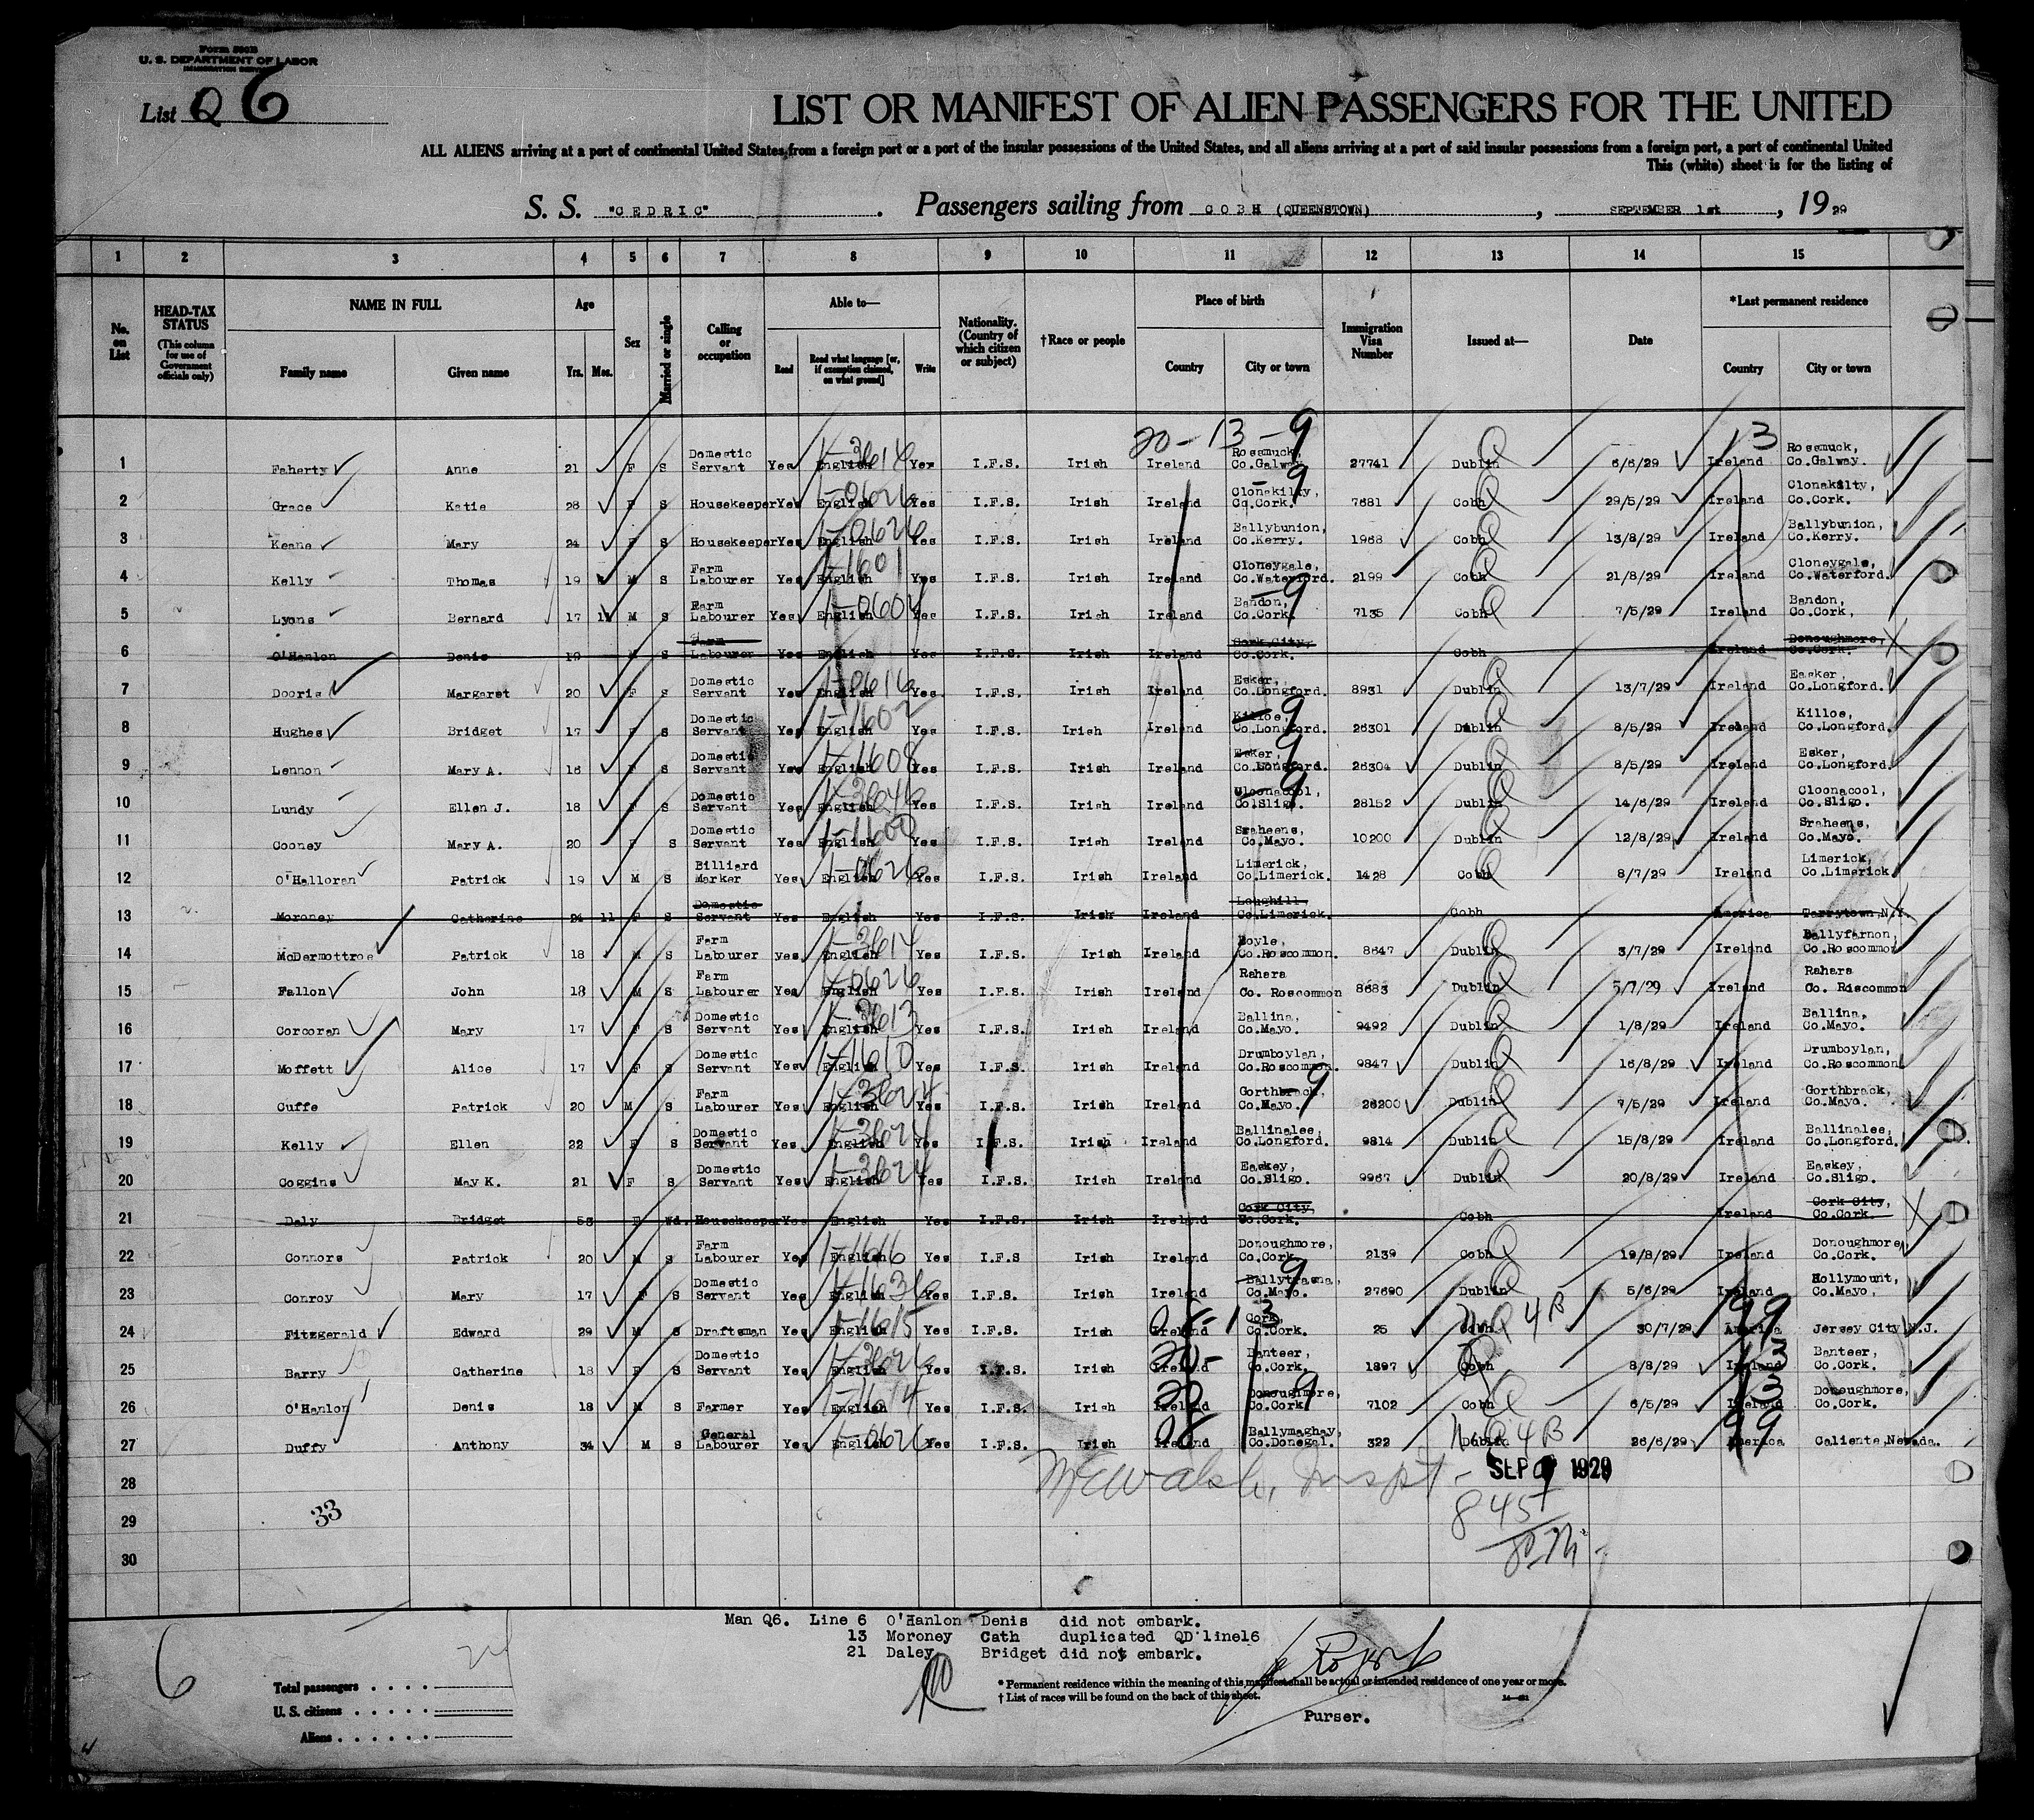 Form 500B
U. S. DEPARTMENT OF LABOR
IMMIGRATION SERVICE
List Q 6
LIST OR MANIFEST OF ALIEN PASSENGERS FOR THE UNITED
ALL ALIENS arriving at a port of continental United States from a foreign port or a port of the insular possessions of the United States, and all aliens arriving at a port of said insular possessions from a foreign port, a port of continental United
This (white) sheet is for the listing of
S. S. "CEDRIC" . Passengers sailing from COBH (QUEENSTOWN) , SEPTEMBER 1st , 1929
1 2 3 4 5 6 7 8 9 10 11 12 13 14 15
No. on List
HEAD-TAX STATUS (This column for use of Government officials only)
NAME IN FULL Family name Given name
Age Yrs. Mos.
Sex
Married or single
Calling or occupation
Able to— Read Read what language [or, if exemption claimed, on what ground] Write
Nationality. (Country of which citizen or subject)
†Race or people
Place of birth Country City or town
Immigration Visa Number
Issued at—
Date
*Last permanent residence Country City or town
20 - 13 - 9 13
1 Faherty Anne 21 F S Domestic Servant Yes English 1-3614 Yes I.F.S. Irish Ireland Rossmuck, Co.Galway. 27741 Dublin 6/6/29 Ireland Rossmuck, Co.Galway.
2 Grace Katie 28 F S Housekeeper Yes English 1-0626 Yes I.F.S. Irish Ireland Clonakilty, Co.Cork. 9 7681 Cobh 29/5/29 Ireland Clonakilty, Co.Cork.
3 Keane Mary 24 F S Housekeeper Yes English 1-0626 Yes I.F.S. Irish Ireland Ballybunion, Co.Kerry. 1968 Cobh 13/8/29 Ireland Ballybunion, Co.Kerry.
4 Kelly Thomas 19 M S Farm Labourer Yes English 1-1601 Yes I.F.S. Irish Ireland Cloneygale, Co.Waterford. 2199 Cobh 21/8/29 Ireland Cloneygale, Co.Waterford.
5 Lyons Bernard 17 M S Farm Labourer Yes English 1-0604 Yes I.F.S. Irish Ireland Bandon, Co.Cork. 9 7135 Cobh 7/5/29 Ireland Bandon, Co.Cork,
6 O'Hanlon Denis 19 M S Farm Labourer Yes English Yes I.F.S. Irish Ireland Cork City, Co.Cork. Cobh Ireland Donoughmore, Co.Cork.
7 Dooris Margaret 20 F S Domestic Servant Yes English 1-0616 Yes. I.F.S. Irish Ireland Esker, Co.Longford. 8931 Dublin 13/7/29 Ireland Easker, Co.Longford.
8 Hughes Bridget 17 F S Domestic Servant Yes English 1-1602 Yes I.F.S. Irish Ireland Killoe, Co.Longford. 9 26301 Dublin 8/5/29 Ireland Killoe, Co.Longford.
9 Lennon Mary A. 16 F S Domestic Servant Yes English 1-1608 Yes I.F.S. Irish Ireland Esker, Co.Longford. 9 26304 Dublin 8/5/29 Ireland Esker, Co.Longford.
10 Lundy Ellen J. 18 F S Domestic Servant Yes English 1-3646 Yes I.F.S. Irish Ireland Cloonacool, Co.Sligo. 9 28152 Dublin 14/6/29 Ireland Cloonacool, Co.Sligo.
11 Cooney Mary A. 20 F S Domestic Servant Yes English 1-1600 Yes I.F.S. Irish Ireland Sraheens, Co.Mayo. 10200 Dublin 12/8/29 Ireland Sraheens, Co.Mayo.
12 O'Halloran Patrick 19 M S Billiard Marker Yes English 1-0626 Yes I.F.S. Irish Ireland Limerick, Co.Limerick. 1428 Cobh 8/7/29 Ireland Limerick, Co.Limerick
13 Moroney Catherine 24 11 F S Domestic Servant Yes English Yes I.F.S. Irish Ireland Loughill Co.Limerick. Cobh America Tarrytown,N.Y.
14 McDermottroe Patrick 18 M S Farm Labourer yes English 1-3614 Yes I.F.S. Irish Ireland Boyle, Co.Roscommon. 8647 Dublin 3/7/29 Ireland Ballyfarnon, Co.Roscommon
15 Fallon John 18 M S Farm Labourer Yes English 1-0626 Yes I.F.S. Irish Ireland Rahara Co. Roscommon 8683 Dublin 5/7/29 Ireland Rahara Co. Roscommon
16 Corcoran Mary 17 F S Domestic Servant Yes English 1-3613 Yes I.F.S. Irish Ireland Ballina, Co.Mayo. 9492 Dublin 1/8/29 Ireland Ballina, Co.Mayo.
17 Moffett Alice 17 F S Domestic Servant Yes English 1-1610 Yes I.F.S. Irish Ireland Drumboylan, Co.Roscommon. 9847 Dublin 16/8/29 Ireland Drumboylan, Co.Roscommon
18 Cuffe Patrick 20 M S Farm Labourer Yes English 1-3624 Yes I.F.S. Irish Ireland Gorthbrack, Co.Mayo. 9 26200 Dublin 7/5/29 Ireland Gorthbrack, Co.Mayo.
19 Kelly Ellen 22 F S Domestic Servant Yes English 1-3624 Yes I.F.S. Irish Ireland Ballinalee, Co.Longford. 9814 Dublin 15/8/29 Ireland Ballinalee, Co.Longford.
20 Coggins May K. 21 F S Domestic Servant Yes English 1-3624 Yes I.F.S. Irish Ireland Easkey, Co.Sligo. 9967 Dublin 20/8/29 Ireland Easkey, Co.Sligo.
21 Daly Bridget 53 F Wd. Housekeeper Yes English Yes I.F.S. Irish Ireland Cork City, Co.Cork. Cobh Ireland Cork City, Co.Cork.
22 Connors Patrick 20 M S Farm Labourer Yes English 1-1616 Yes I.F.S Irish Ireland Donoughmore, Co.Cork 2139 Cobh 19/8/29 Ireland Donoughmore, Co.Cork.
23 Conroy Mary 17 F S Domestic Servant Yes English 1-1636 Yes I.F.S. Irish Ireland Ballytrasna, Co.Mayo. 9 27690 Dublin 5/6/29 Ireland Hollymount, Co.Mayo,
24 Fitzgerald Edward 29 M S Draftsman Yes English 1-1615 Yes I.F.S. Irish Ireland Cork, Co.Cork. 25 Cobh 4B 30/7/29 America 99 Jersey City N.J.
25 Barry Catherine 18 F S Domestic Servant Yes English 1-3626 Yes I.F.S. Irish Ireland 20- Banteer, Co.Cork. 1897 Cobh 8/8/29 Ireland 13 Banteer, Co.Cork.
26 O'Hanlon Denis 18 M S Farmer Yes English 1-1614 Yes I.F.S. Irish Ireland 20 Donoughmore, Co.Cork 9 7102 Cobh 6/5/29 Ireland 13 Donoughmore, Co.Cork.
27 Duffy Anthony 34 M S General Labourer Yes English 1-0626 Yes I.F.S. Irish Ireland Ballymaghay, Co.Donegal. 322 Dublin 4B 26/6/29 America 99 Caliente,Nevada.
28 SEP 1929
29 33 845
30
Man Q6. Line 6 O'Hanlon Denis did not embark.
13 Moroney Cath duplicated QD line16
21 Daley Bridget did not embark.
6 24
Total passengers . . . .
U. S. citizens . . . . .
Aliens . . . . . .
* Permanent residence within the meaning of this manifest shall be actual or intended residence of one year or more.
† List of races will be found on the back of this sheet.
Purser.